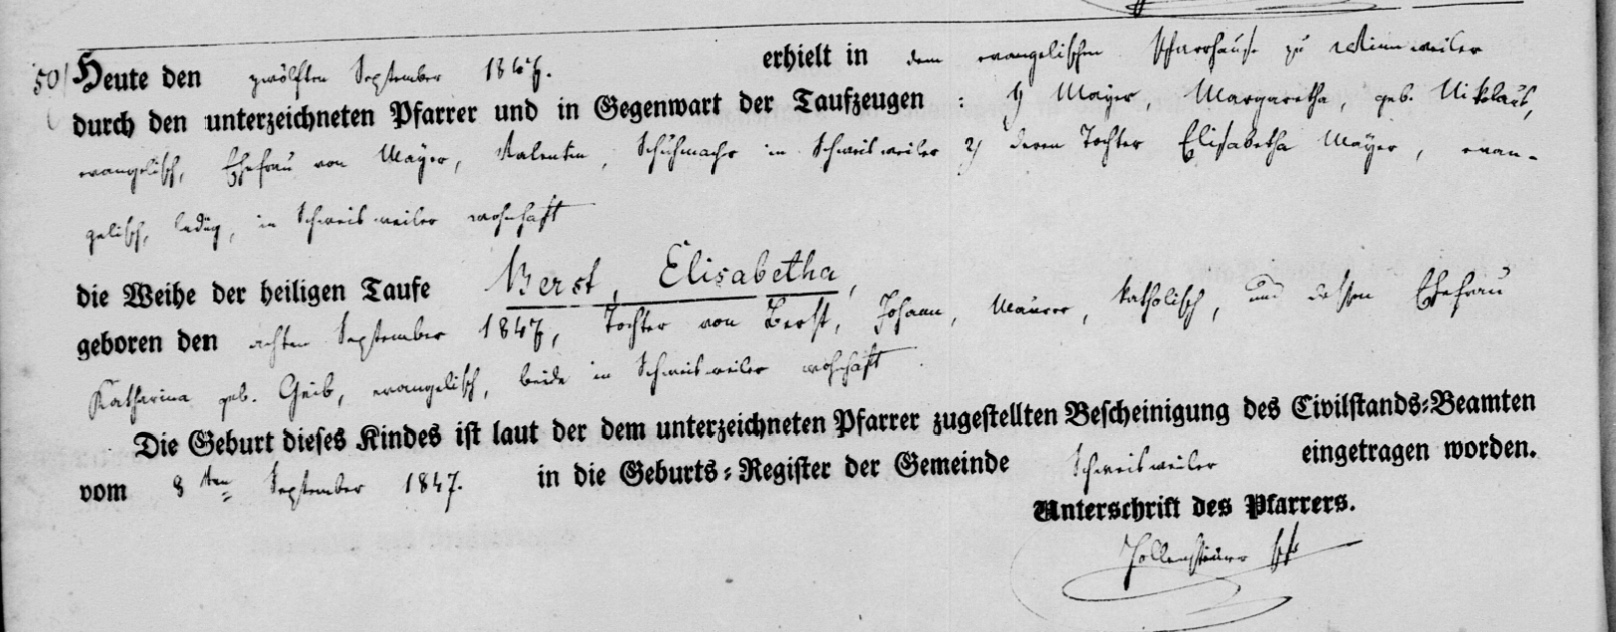 50/ Heute den zwölften September 1847. erhielt in dem evangelischen Pfarrhause zu Winnweiler
durch den unterzeichneten Pfarrer und in Gegenwart der Taufzeugen : 1) Mayer, Margaretha, geb. Nikolaus,
evangelisch, Ehefrau von Mayer, Valentin, Schuhmacher in Schweisweiler 2) deren Tochter Elisabetha Mayer, evan-
gelisch, ledig, in Schweisweiler wohnhaft
die Weihe der heiligen Taufe Berst, Elisabetha,
geboren den achten September 1847, Tochter von Berst, Johann, Maurer, katholisch, und dessen Ehefrau
Katharina geb. Geib, evangelisch, beide in Schweisweiler wohnhaft
Die Geburt dieses Kindes ist laut der dem unterzeichneten Pfarrer zugestellten Bescheinigung des Civilstands-Beamten
vom 8ten September 1847. in die Geburts-Register der Gemeinde Schweisweiler eingetragen worden.
Unterschrift des Pfarrers.